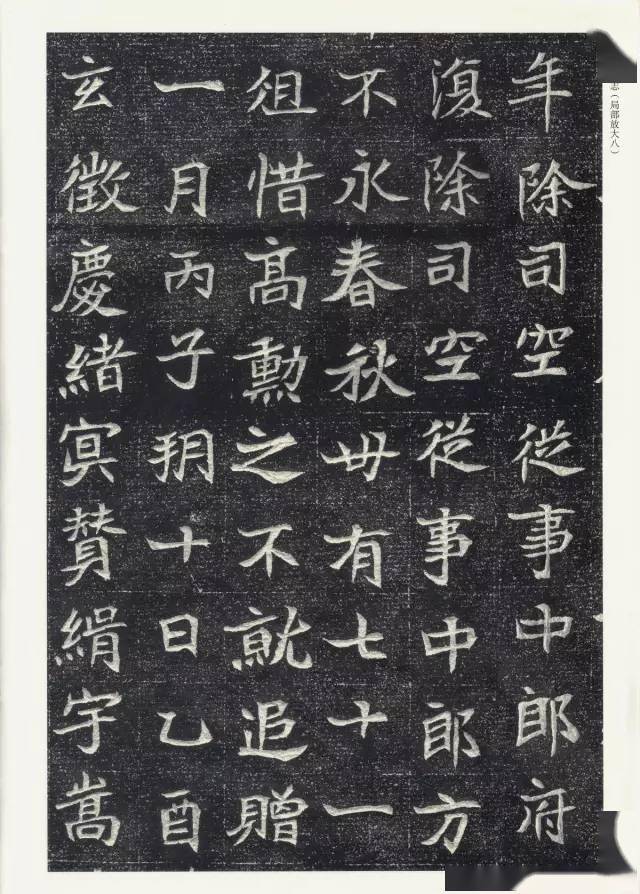 志（局部放大八）
年除司空從事中郎府
復除司空從事中郎方
不永春秋卌有七十一
徂惜高勳之不就追贈
一月丙子朔十日乙酉
玄徵慶緒冥贊緝宇嵩